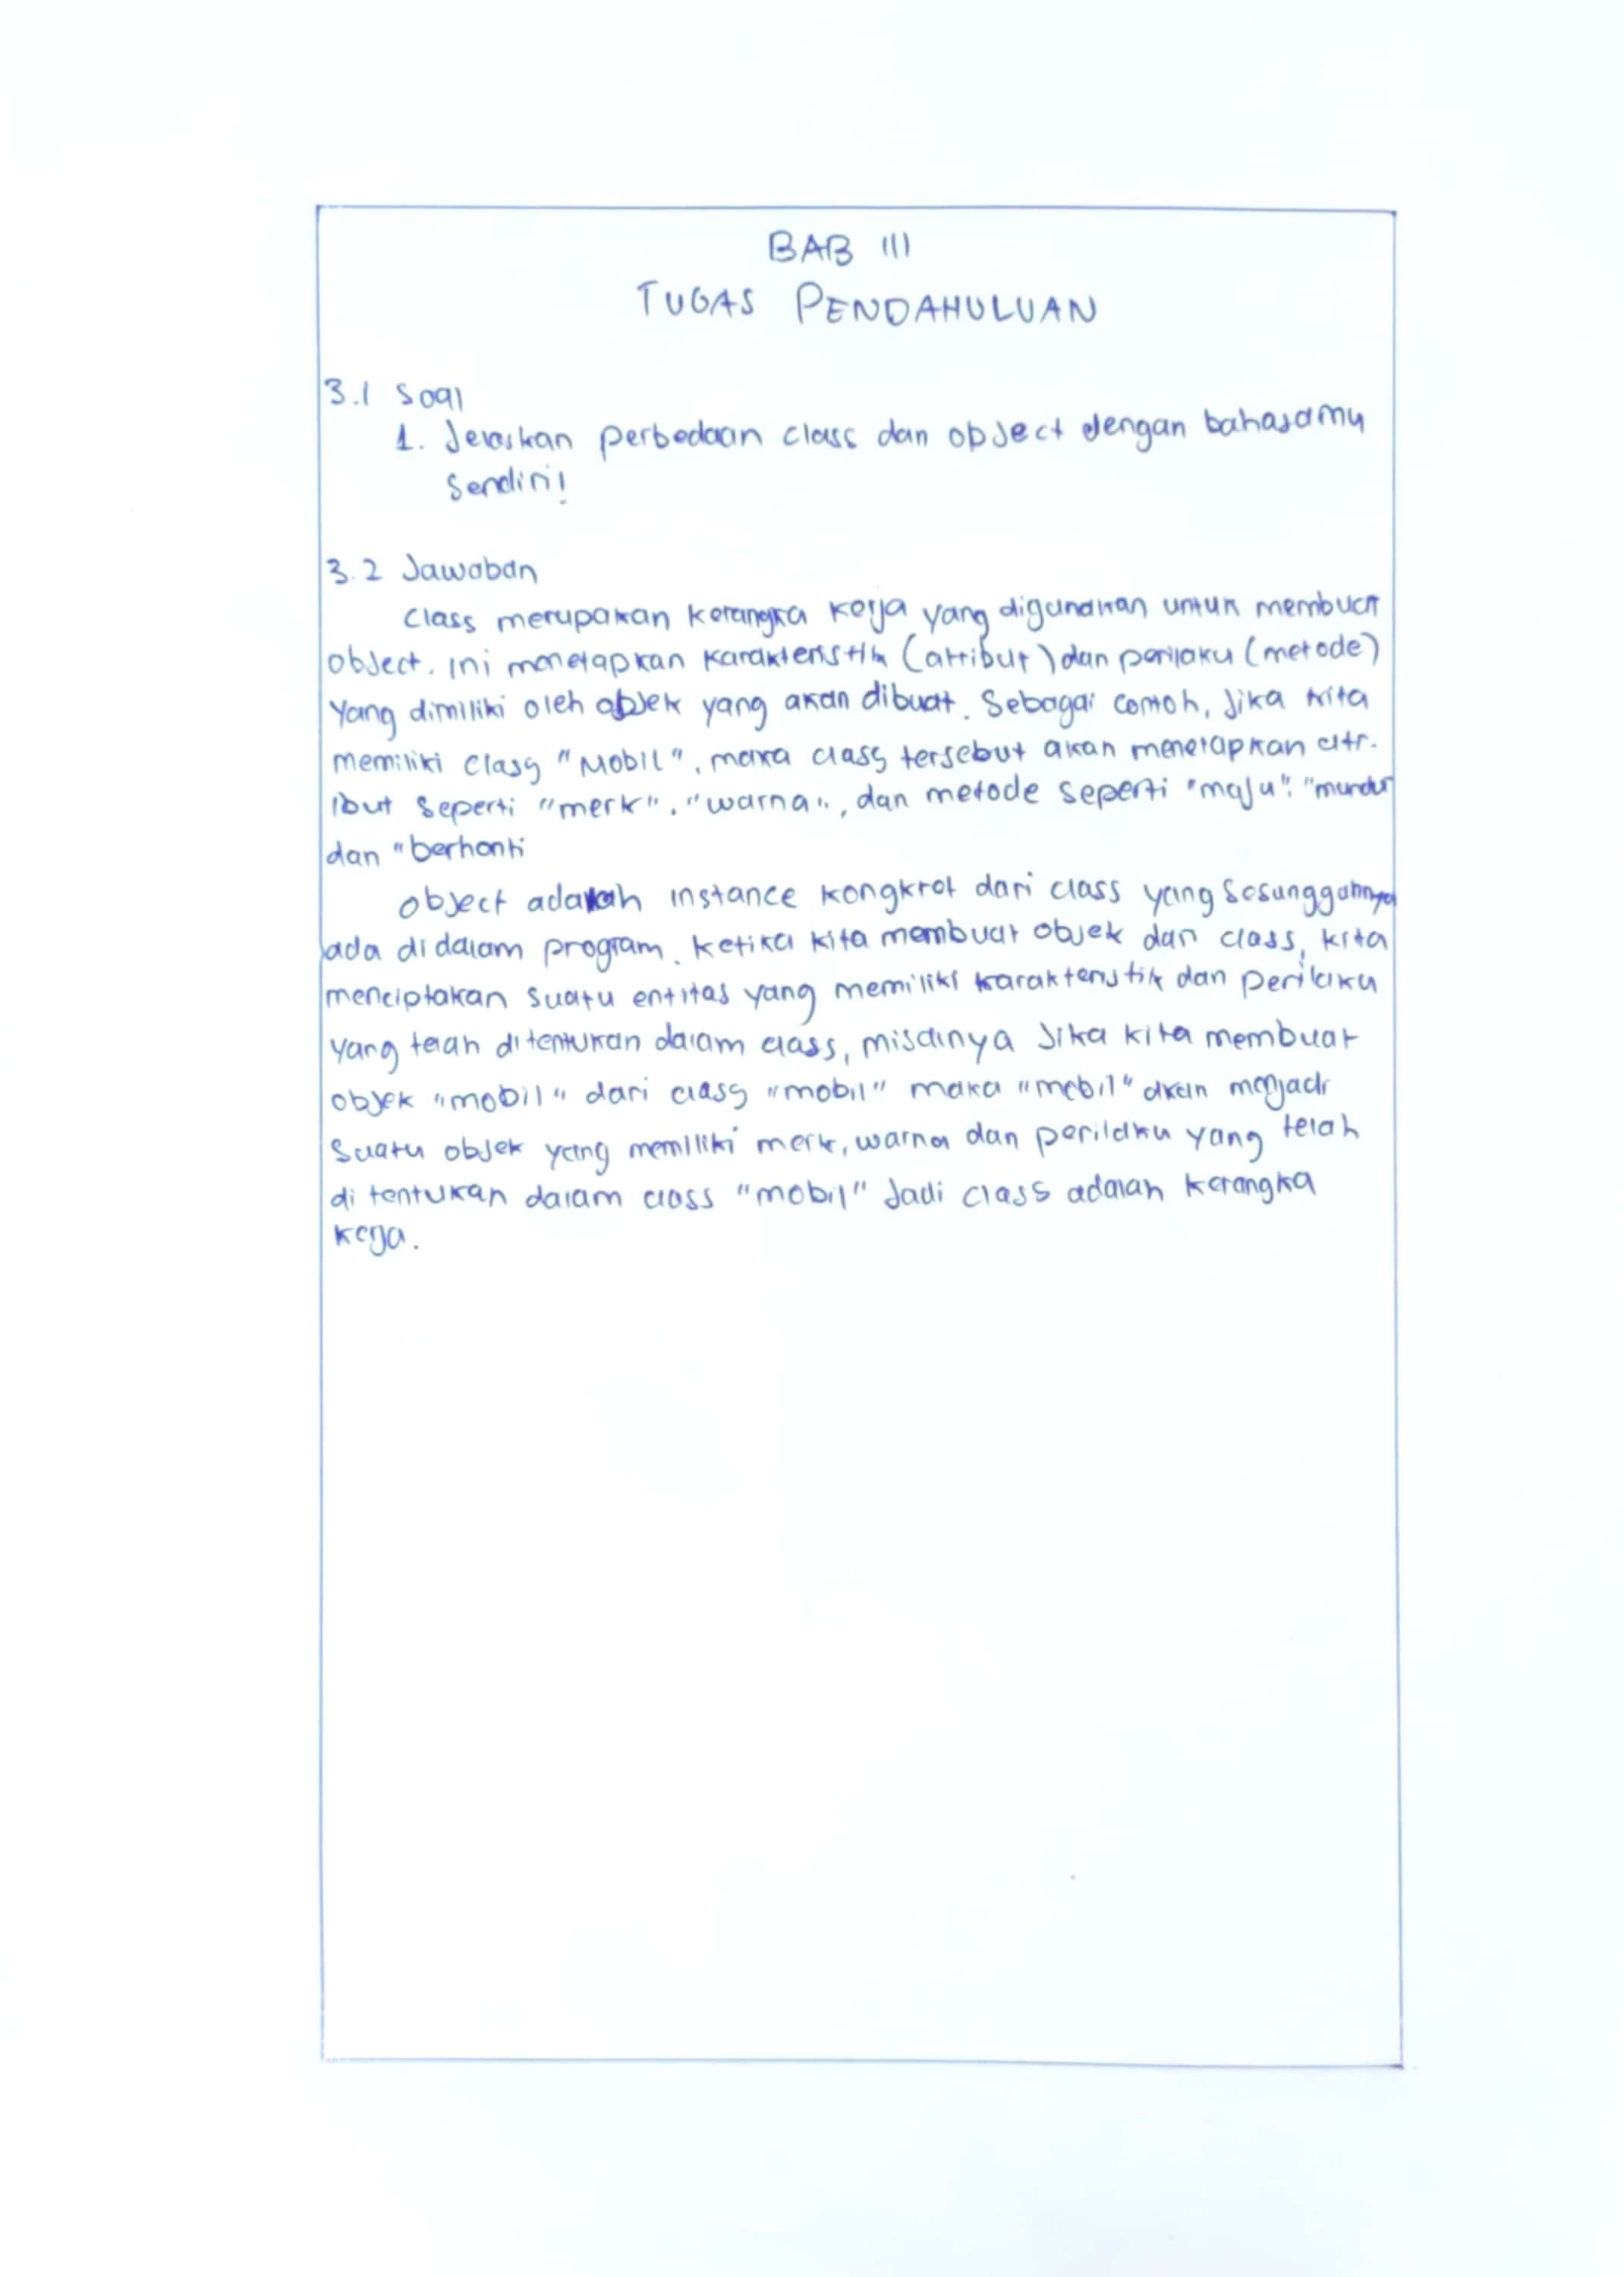 BAB III
TUGAS PENDAHULUAN
3.1 Soal
1. Jelaskan perbedaan class dan object dengan bahasamu
Sendiri!
3.2 Jawaban
Class merupakan kerangka kerja yang digunakan untuk membuat
object. Ini menetapkan karakteristik (attribut) dan perilaku (metode)
Yang dimiliki oleh objek yang akan dibuat. Sebagai contoh, Jika kita
memiliki class "MOBIL", maka class tersebut akan menetapkan attr.
ibut seperti "merk", "warna", dan metode seperti "maju", "mundur
dan "berhenti
Object adalah instance kongkret dari class yang Sesungguhnya
ada didalam program. Ketika kita membuat objek dari class, kita
menciptakan suatu entitas yang memiliki karakteristik dan perilaku
yang telah ditentukan dalam class, misalnya Jika kita membuat
objek "mobil" dari class "mobil" maka "mobil" akan menjadi
Suatu objek yang memiliki merk, warna dan perilaku yang telah
di tentukan dalam class "mobil" Jadi class adalah kerangka
kerja.